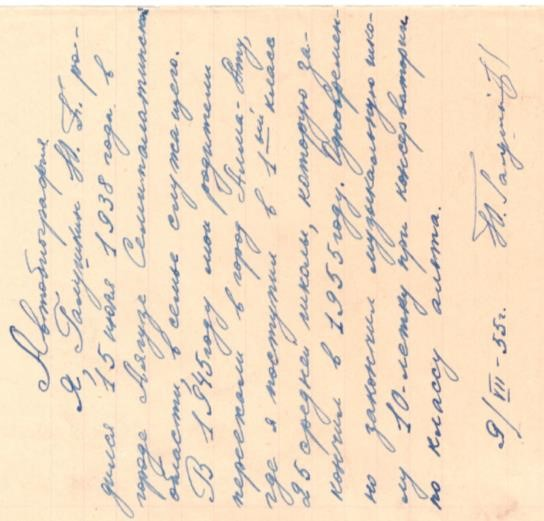 Автобиография
Я, Галушкин Ю. А. ро-
дился 15 июля 1938 года в
городе Аягузе Семипалатинской
области, в семье служащего.
В 1945 году мои родители
переехали в город Алма-Ату,
где я поступил в 1ый класс
25 средней школы, которую за-
кончил в 1955 году. Одновремен-
но закончил музыкальную шко-
лу 10-летку при консерватории
по классу альта.
9/VII-55г.